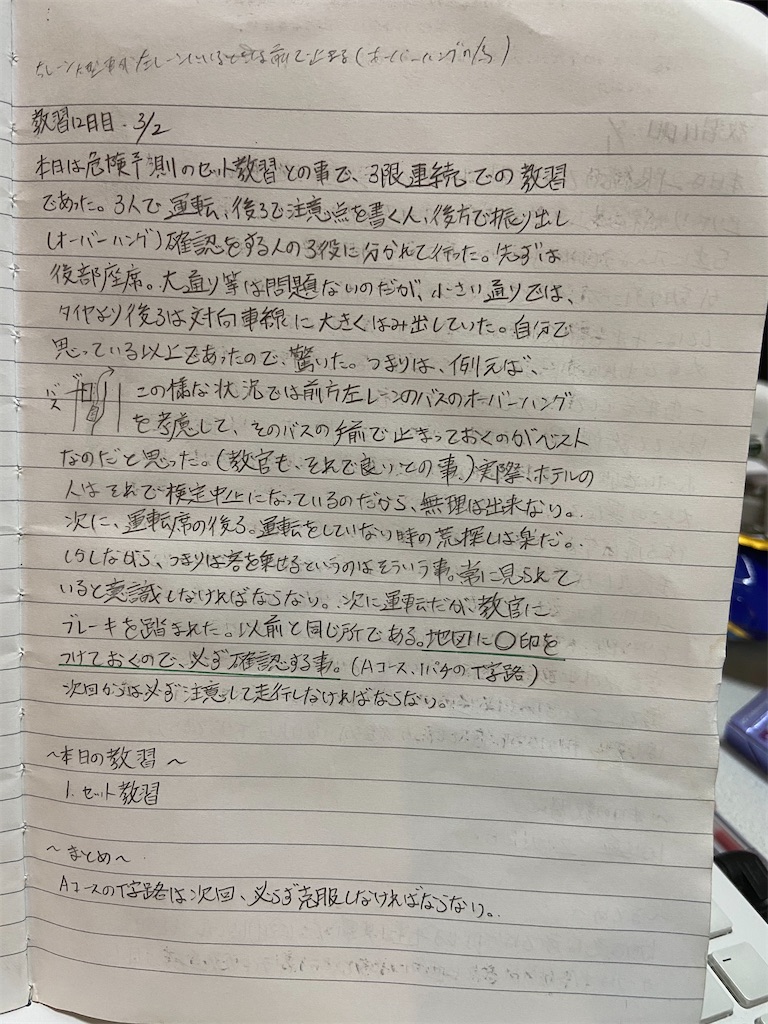 大型車が左レーンにいるときは前で止まる(オーバーハングの為)
教習12日目・3/2
本日は危険予測のセット教習との事で、3限連続での教習
であった。3人で運転、後ろで注意点を書く人、後方で振り出し
(オーバーハング)確認をする人の3役に分かれて行った。先ずは
後部座席。大通り等は問題ないのだが、小さい通りでは、
タイヤより後ろは対向車線に大きくはみ出していた。自分で
思っている以上であったので、驚いた。つまりは、例えば、
バス この様な状況では前方左レーンのバスのオーバーハング
を考慮して、そのバスの手前で止まっておくのがベスト
なのだと思った。(教官も、それで良いとの事。)実際、ホテルの
人はそれで検定中止になっているのだから、無理は出来ない。
次に、運転席の後ろ。運転をしていない時の荒探しは楽だ。
しかしながら、つまりは客を乗せるというのはそういう事。常に見られて
いると意識しなければならない。次に運転だが、教官に
ブレーキを踏まれた。以前と同じ所である。地図に〇印を
つけておくので、必ず確認する事。(Aコース、パチのT字路)
次回からは必ず注意して走行しなければならない。
~本日の教習~
1. セット教習
~まとめ~
AコースのT字路は次回、必らず克服しなければならない。